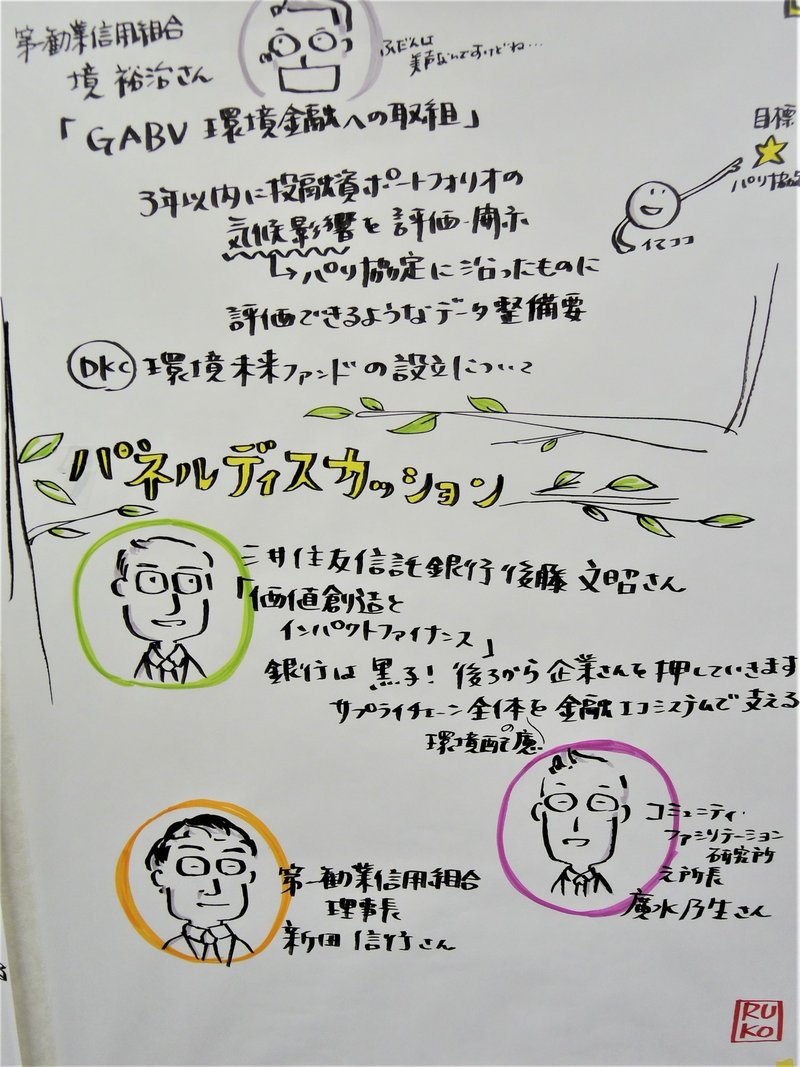 第一勧業信用組合
境 裕治さん
ふだんは
美声なんですけどね…
「GABV 環境金融への取組」
目標
パリ協定
イマココ
3年以内に投融資ポートフォリオの
気候影響を評価・開示
→パリ協定に沿ったものに
評価できるようなデータ整備要
DKC 環境未来ファンドの設立について
パネルディスカッション
三井住友信託銀行 後藤 文昭さん
「価値創造と
インパクトファイナンス」
銀行は黒子! 後ろから企業さんを押していきます
サプライチェーン全体を金融エコシステムで支える
環境配慮の
コミュニティ・
ファシリテーション
研究所
元所長
廣水乃生さん
第一勧業信用組合
理事長
新田 信行さん
RU
KO